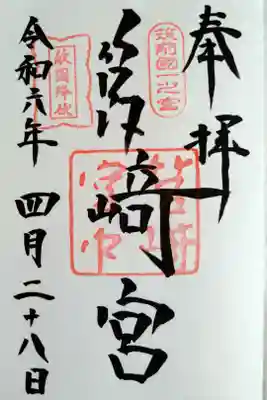 奉拝
筑前國一之宮
筥崎宮
筥崎宮印
敵国降伏
令和六年 四月二十八日